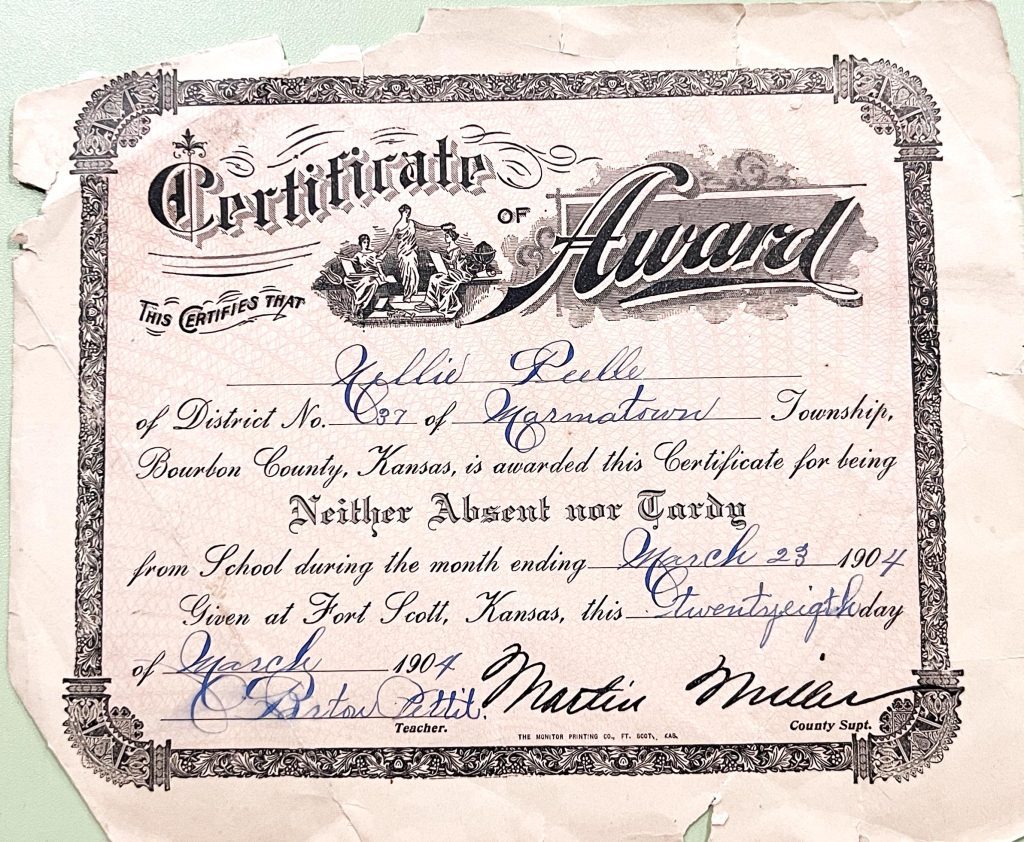 Certificate
OF Award
THIS CERTIFIES THAT
Nellie
of District No. 37 of Marmatown Township,
Bourbon County, Kansas, is awarded this Certificate for being
Neither Absent nor Tardy
from School during the month ending March 23 1904
Given at Fort Scott, Kansas, this twentyeigth day
of March 1904
Pettit. Martin Miller
Teacher. County Supt.
THE MONITOR PRINTING CO., FT. SCOTT, KAS.